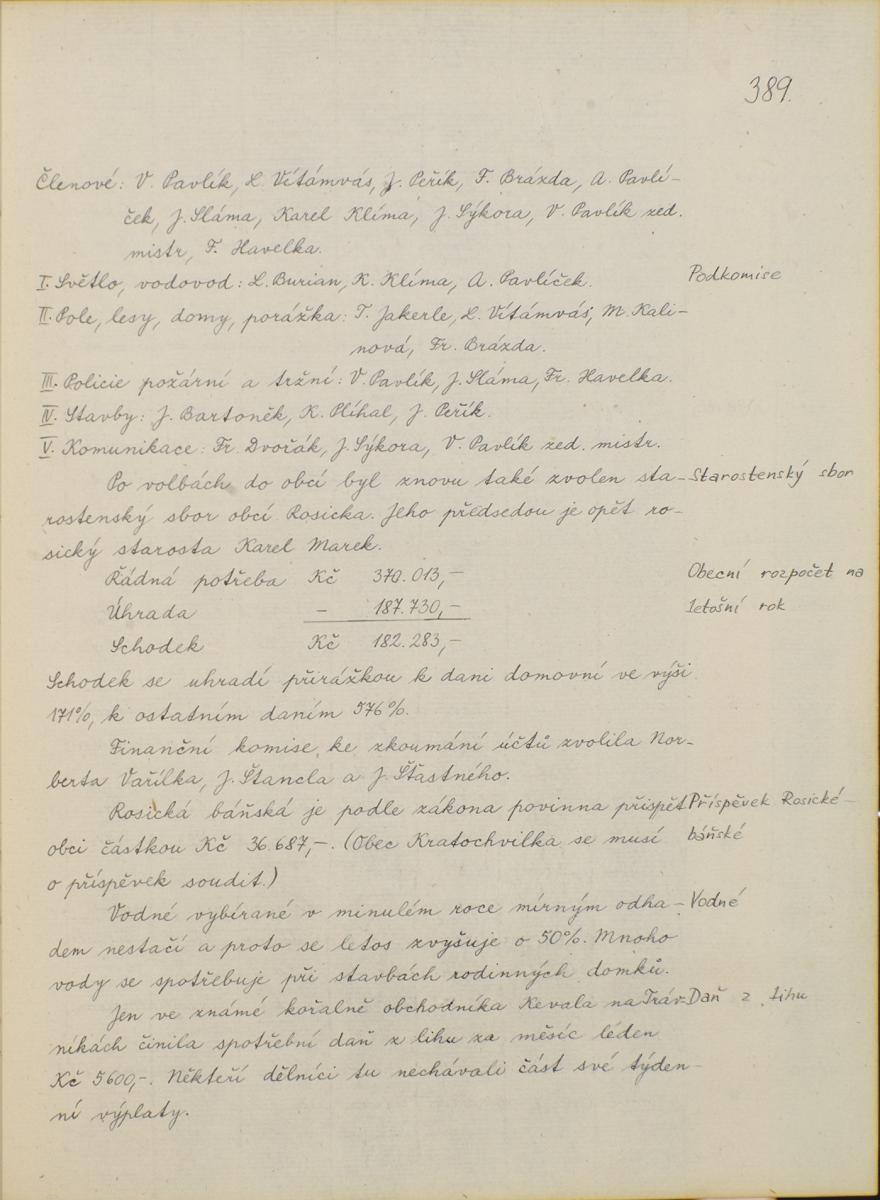 389.
Členové: V. Pavlík, L. Vítámvás, J. Peřík, F. Brázda, A. Pavlí-
ček, J. Sláma, Karel Klíma, J. Sýkora, V. Pavlík zed.
mistr, F. Havelka.
I. Světlo, vodovod: L. Burian, K. Klíma, A. Pavlíček.
Podkomise
II. Pole, lesy, domy, porážka: T. Jakerle, L. Vítámvás, M. Kali-
nová, Fr. Brázda.
III. Policie požární a tržní: V. Pavlík, J. Sláma, Fr. Havelka.
IV. Stavby: J. Bartoněk, K. Plíhal, J. Peřík.
V. Komunikace: Fr. Dvořák, J. Sýkora, V. Pavlík zed. mistr.
Po volbách do obcí byl znovu také zvolen sta-
Starostenský sbor
rostenský sbor obcí Rosicka. Jeho předsedou je opět ro-
sický starosta Karel Marek.
Řádná potřeba Kč 370.013,-
Obecní rozpočet na
Úhrada - 187.730,-
letošní rok
Schodek Kč 182.283,-
Schodek se uhradí přirážkou k dani domovní ve výši
171%, k ostatním daním 576%.
Finanční komise ke zkoumání účtů zvolila Nor-
berta Vařilka, J. Štancla a J. Šťastného.
Rosická báňská je podle zákona povinna přispět
Příspěvek Rosické-
obci částkou Kč 36.687,-. (Obec Kratochvilka se musí
báňské
o příspěvek soudit.)
Vodné vybírané v minulém roce mírným odha-
Vodné
dem nestačí a proto se letos zvyšuje o 50%. Mnoho
vody se spotřebuje při stavbách rodinných domků.
Jen ve známé kořalně obchodníka Kevala na Tráv-
Daň z lihu
níkách činila spotřební daň z lihu za měsíc léden
Kč 5600,-. Někteří dělníci tu nechávali část své týden-
ní výplaty.